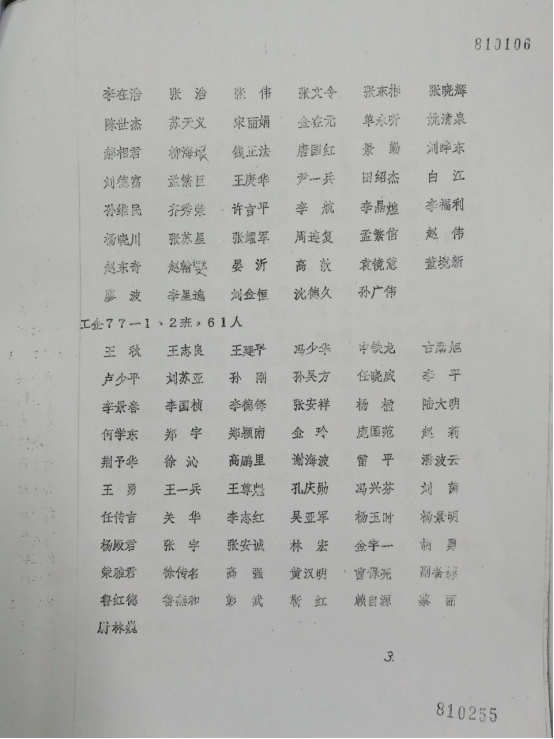 810106
李在治 张治 张伟 张文令 张东彬 张晓辉
陈世杰 苏天义 宋丽娟 金在元 单永昕 姚清泉
郝相君 柳海垠 钱正法 唐国红 景勤 刘晔东
刘德富 孟繁巨 王庚华 尹一兵 田绍杰 白江
孙维民 齐秀荣 许言平 李航 李晶煌 李福利
杨晓川 张苏星 张耀军 周连复 孟繁信 赵伟
赵东奇 赵翰 晏沂 高歆 袁镜慧 董境新
廖波 李星逸 刘金恒 沈德久 孙广伟
工企77—1、2班，61人
王秋 王志良 王建平 冯少华
卢少平 刘苏亚 孙刚 孙吴方 任晓威 李平
李景春 李国桢 李德铎 张安祥 杨楹 陆大明
何学东 郑宇 郑颖南 金玲 庞国范 赵莉
荆予华 徐沁 高鹏里 谢海波 雷平 潘波云
王勇 王一兵 王尊彪 孔庆勋 冯兴芬 刘茵
任传吉 关华 李志红 吴亚军 杨玉时 杨景明
杨殿君 张宇 张安诚 林宏 金宇一 胡勇
荣雅君 徐传名 高强 黄汉明
鲁红德 鲁燕和 彭武 靳红 赖自源 蔡丽
尉林巍
3.
810255